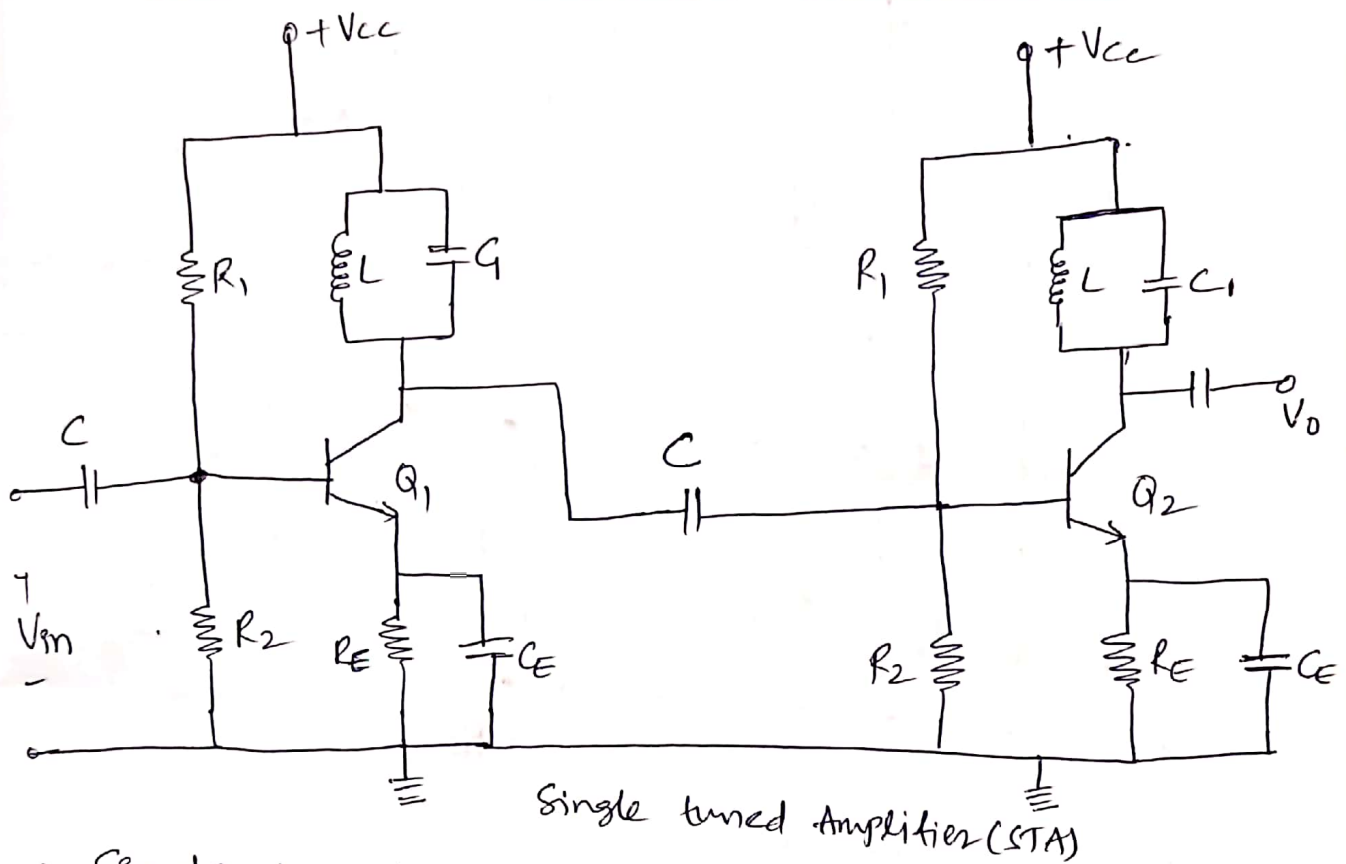 +Vcc
+Vcc
R1
L
C1
R1
L
C1
C
Q1
C
Q2
V0
+
Vin
-
R2
RE
CE
R2
RE
CE
Single tuned Amplifier (STA)